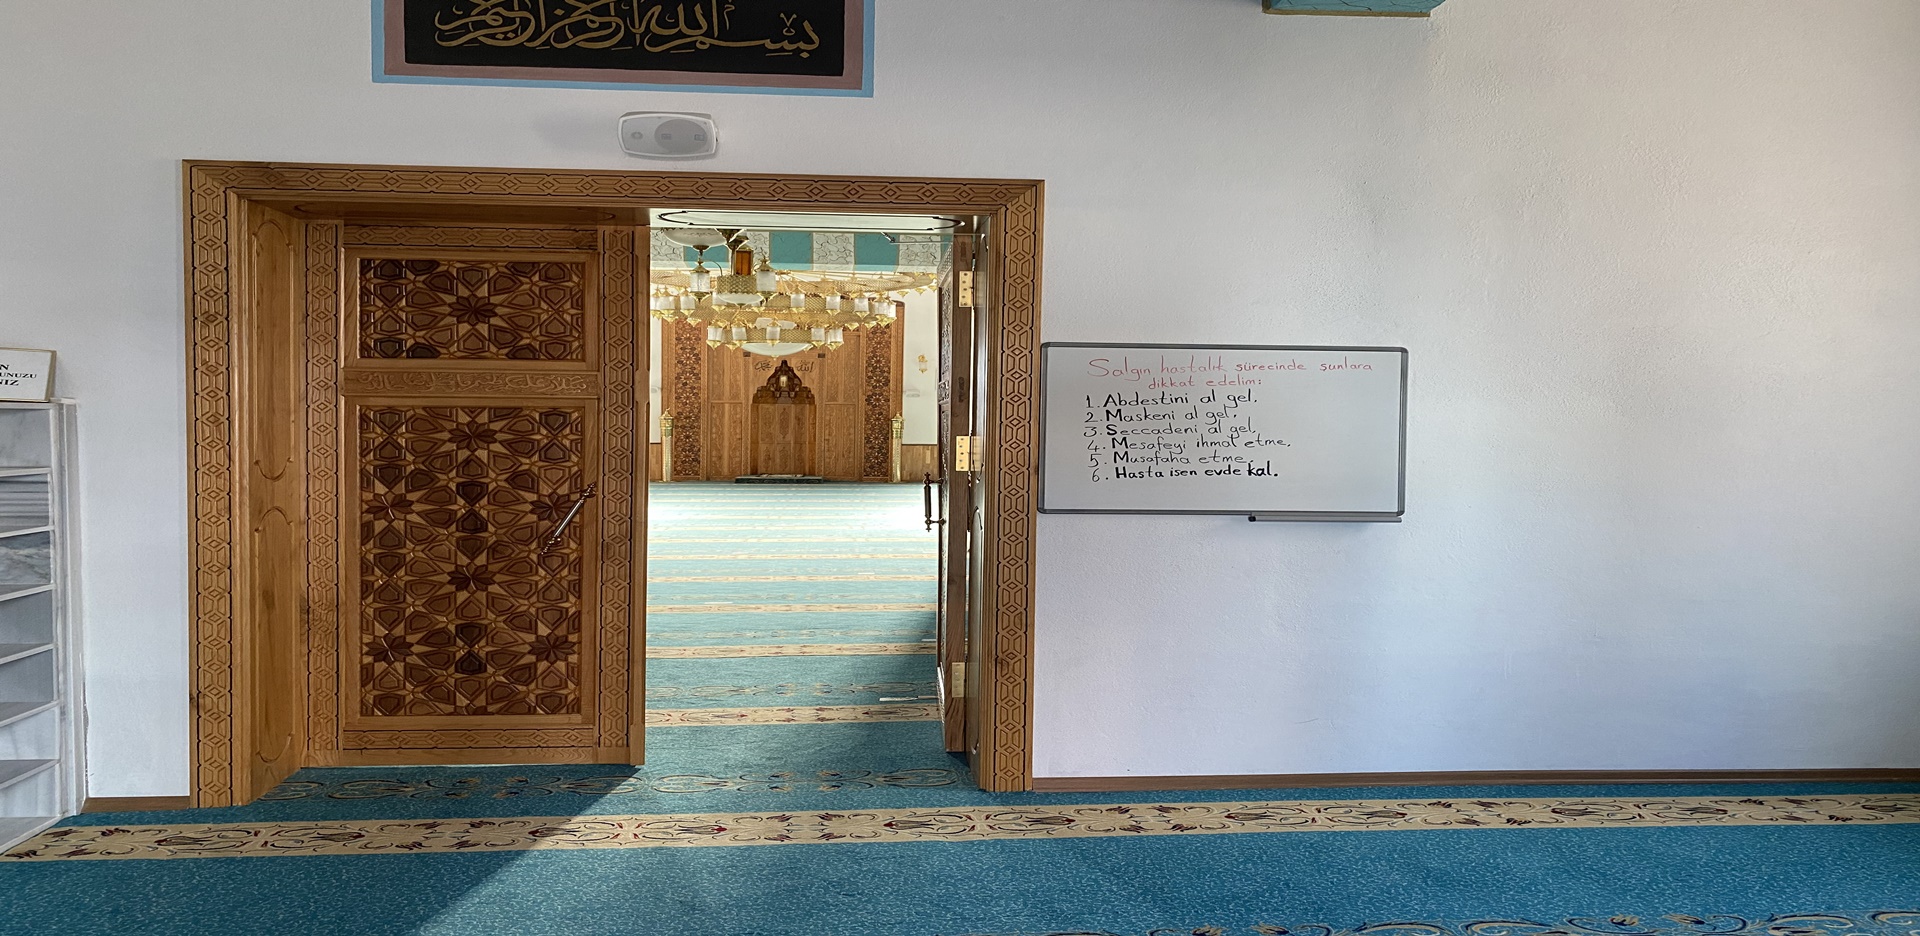 بسم الله الرحمن الرحيم
N
UNUZU
NIZ
الله
محمد
Salgın hastalık sürecinde şunlara
dikkat edelim:
1. Abdestini al gel.
2. Maskeni al gel.
3. Seccadeni al gel.
4. Mesafeyi ihmal etme.
5. Musafaha etme.
6. Hasta isen evde kal.